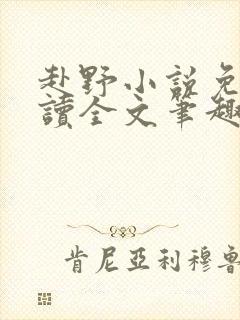 赴野小説免
讀全文筆趣
肯尼亞利穆魯